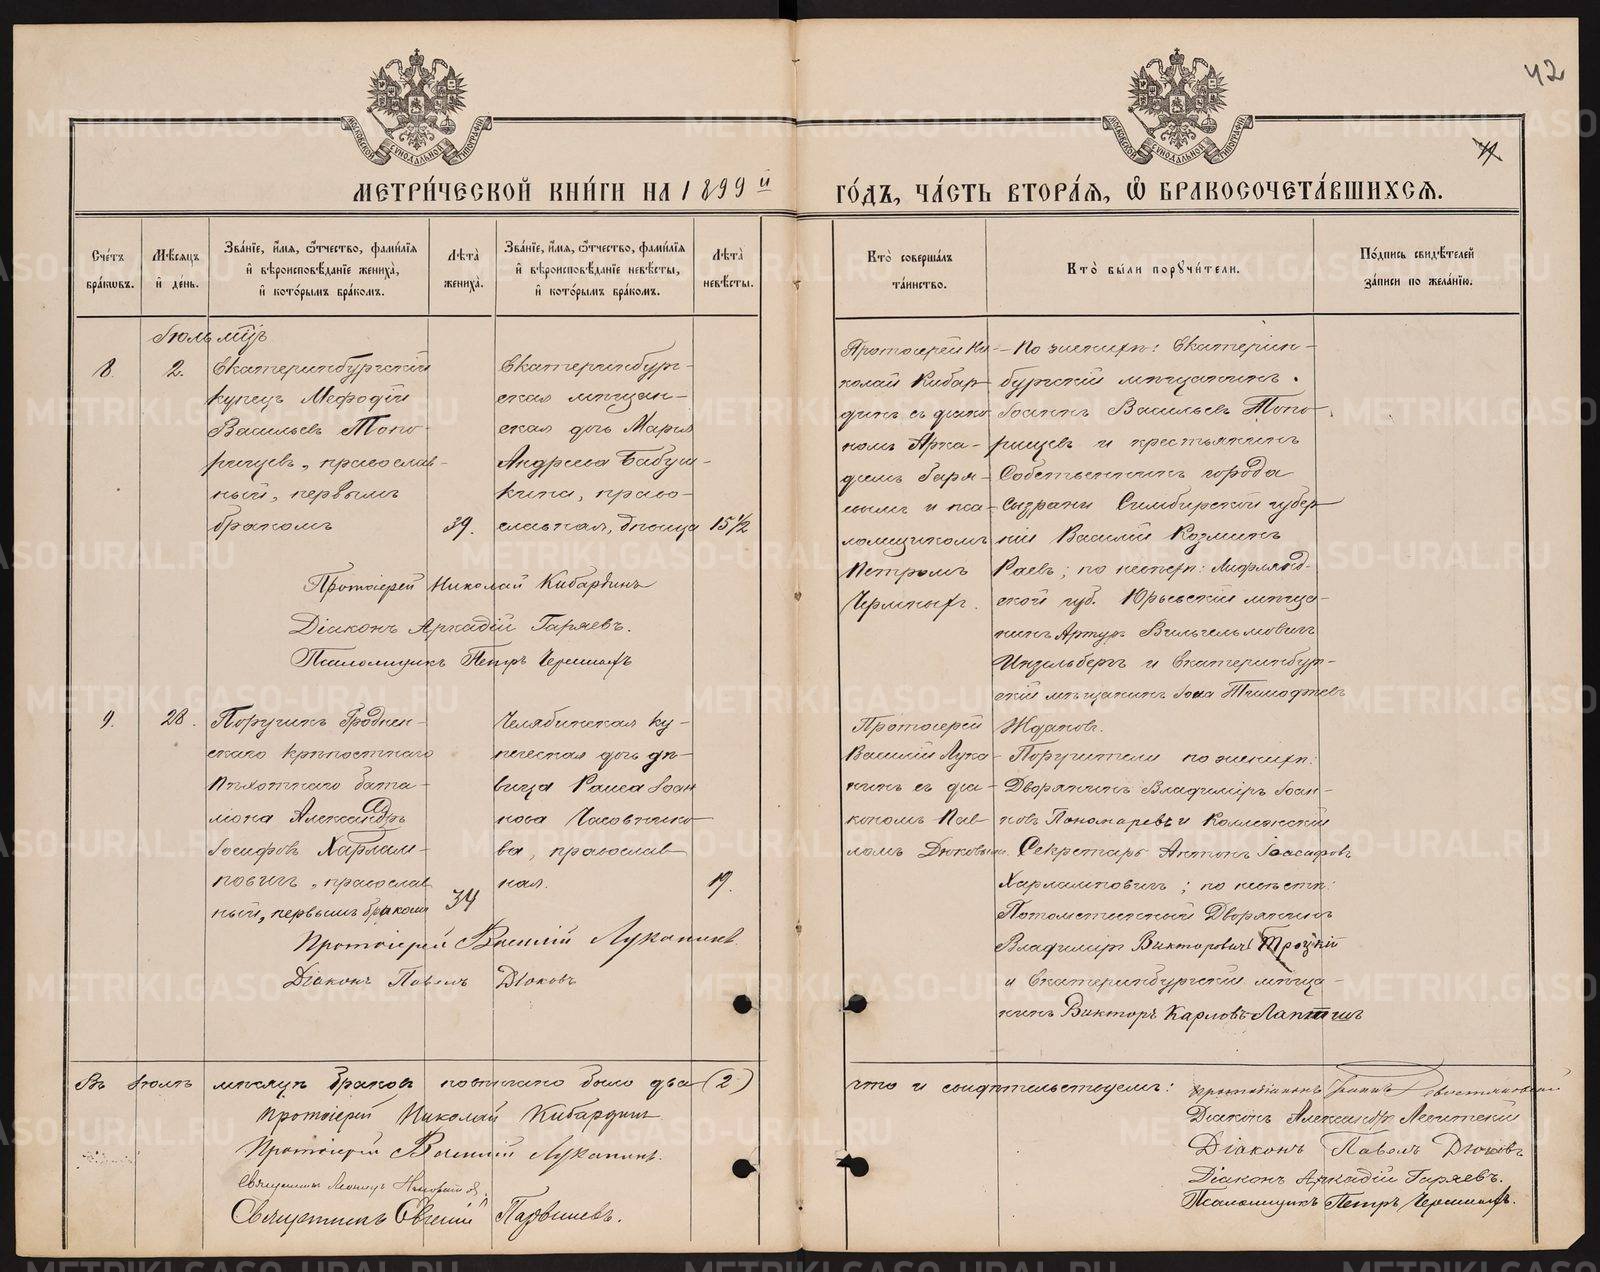 42
МОСКОВСКОЙ СѴНОДАЛЬНОЙ ТИПОГРАФІИ
МОСКОВСКОЙ СѴНОДАЛЬНОЙ ТИПОГРАФІИ
МЕТРИ́ЧЕСКОЙ КНИ́ГИ НА 1899й ГО́ДЪ, ЧА́СТЬ ВТОРА́Я, Ѡ БРАКОСОЧЕТА́ВШИХСЯ.
Сче́тъ бра́кѡвъ.
Мѣ́сяцъ и҆ де́нь.
Зва́нїе, и҆́мя, ѻ҆́тчество, фами́лїя и҆ вѣроисповѣ́данїе жениха̀, и҆ кото́рымъ бра́комъ.
Лѣта̀ жениха̀.
Зва́нїе, и҆́мя, ѻ҆́тчество, фами́лїя и҆ вѣроисповѣ́данїе невѣ́сты, и҆ кото́рымъ бра́комъ.
Лѣта̀ невѣ́сты.
Кто̀ соверша́лъ та́инство.
Кто̀ бы́ли порꙋчи́тели.
По́дпись свидѣ́телей за́писи по жела́нїю.
Іюль мцъ
8.
2.
Екатеринбургскій
купецъ Меѳодій
Васильевъ Топо-
рищевъ, православ-
ный, первымъ
бракомъ
39.
Екатеринбург-
ская мѣщан-
ская дочь Марія
Андреева Бабуш-
кина, право-
славная, дѣвица
15½
Протоіерей Ни-
колай Кибар-
динъ съ діако-
номъ Арка-
діемъ Гаря-
евымъ и пса-
ломщикомъ
Петромъ
— По женихѣ: Екатерин-
бургскій мѣщанинъ
Іоаннъ Васильевъ Топо-
рищевъ и крестьянинъ
Собственникъ города
Сызрани Симбирской губер
ніи Василій Козминъ
Раевъ; по невѣстѣ: Лифлянд-
ской губ. Юрьевскій мѣща-
нинъ Артуръ Вильгельмовичъ
и Екатеринбур-
скій мѣщанинъ Іона Тимофѣевъ
Ждановъ.
Протоіерей Николай Кибардинъ
Діаконъ Аркадій Гаряевъ.
Псаломщикъ Петръ
9.
28.
Поручикъ Гроднен-
скаго крѣпостнаго
пѣхотнаго бата-
ліона Александръ
Іосифовъ Харлам-
повичъ, православ
ный, первымъ бракомъ
34
Челябинская ку-
печеская дочь дѣ-
вица Раиса Іоан
нова Часовнико-
ва, православ
ная.
19.
Протоіерей
Василій Лука-
нинъ съ діа-
кономъ Пав-
ломъ Дюковымъ
Поручители по женихѣ:
Дворянинъ Владиміръ Іоан-
новъ Пономаревъ и Коллежскій
Секретарь Антонъ Іоасафовъ
Харламповичъ; по невѣстѣ:
Потомственный Дворянинъ
Владиміръ Викторовичъ Троцкій
и Екатеринбургскій мѣща-
нинъ Викторъ Карловъ
Протоіерей Василій Луканинъ.
Діаконъ Павелъ Дюковъ
Въ Іюлѣ мѣсяцѣ браковъ повѣнчано было два (2) что и свидѣтельствуемъ:
Протоіерей Николай Кибардинъ
Протоіерей Василій Луканинъ.
Священникъ
Священникъ Евгеній
Протодіаконъ
Діаконъ Александръ
Діаконъ Павелъ Дюковъ
Діаконъ Аркадій Гаряевъ.
Псаломщикъ Петръ
METRIKI.GASO-URAL.RU